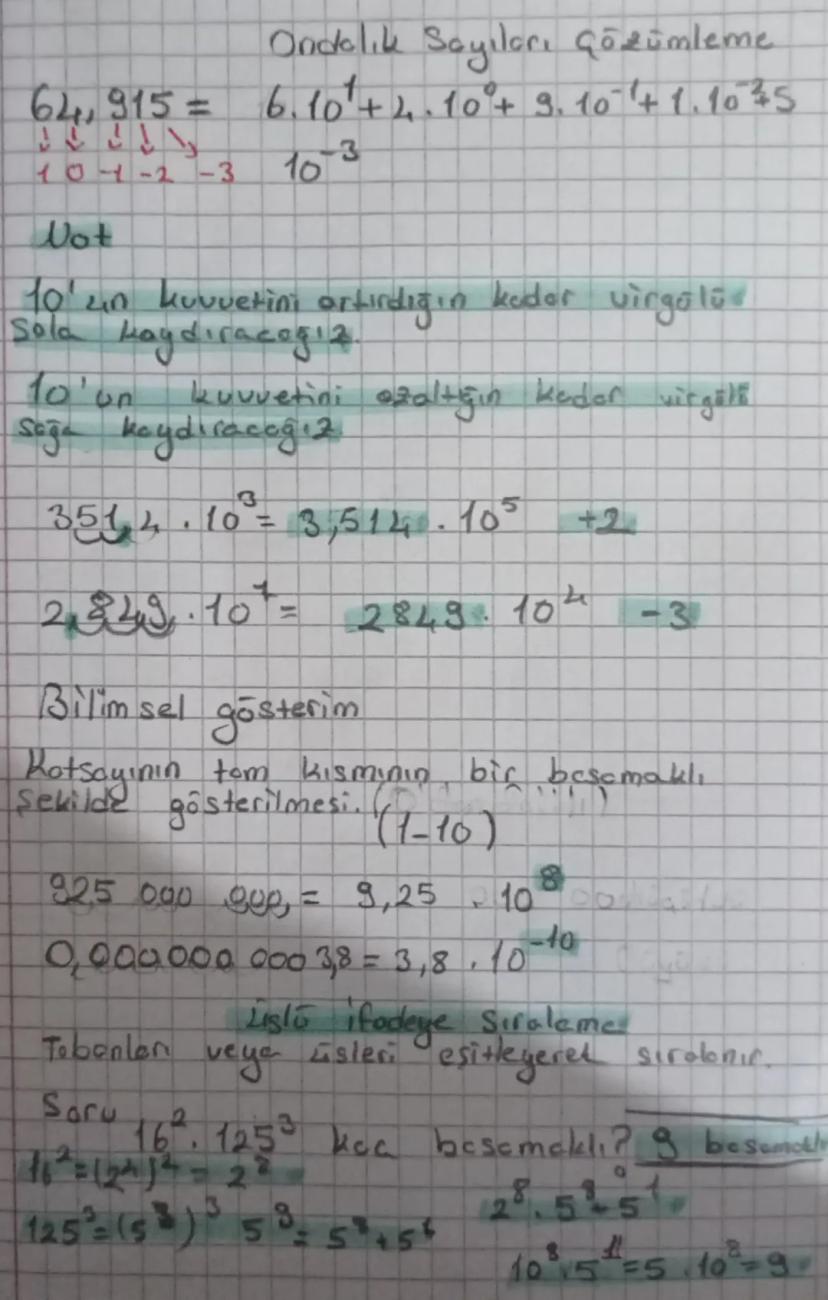 Ondalık Sayıları Çözümleme
64,915 = 6.10¹+4.10⁰+9.10⁻¹+1.10⁻²+5
1 0 -1 -2 -3 10⁻³
Not
10'un kuvvetini artırdığın kadar virgülü
sola kaydıracağız.
10'un kuvvetini azaltığın kadar virgülü
sağa kaydıracağız
351,4 . 10³ = 3,514 . 10⁵ +2
2,849 . 10⁷ = 2849 . 10⁴ -3
Bilimsel gösterim
Katsayının tam kısmının bir basamaklı
şekilde gösterilmesi. (1-10)
925 000 000, = 9,25 . 10⁸
0,000000 000 3,8 = 3,8 . 10⁻¹⁰
üslü ifadeye sıralama
Tabanları veya üsleri eşitleyerek sıralanır.
Soru
16² . 125³ kaç basamaklı? 9 basamaklı
16² = (2⁴)² = 2⁸
2⁸ . 5⁸ . 5¹
125³ = (5³)³ 5⁹ = 5⁸ + 5¹
10⁸ . 5¹ = 5 . 10⁸ = 9